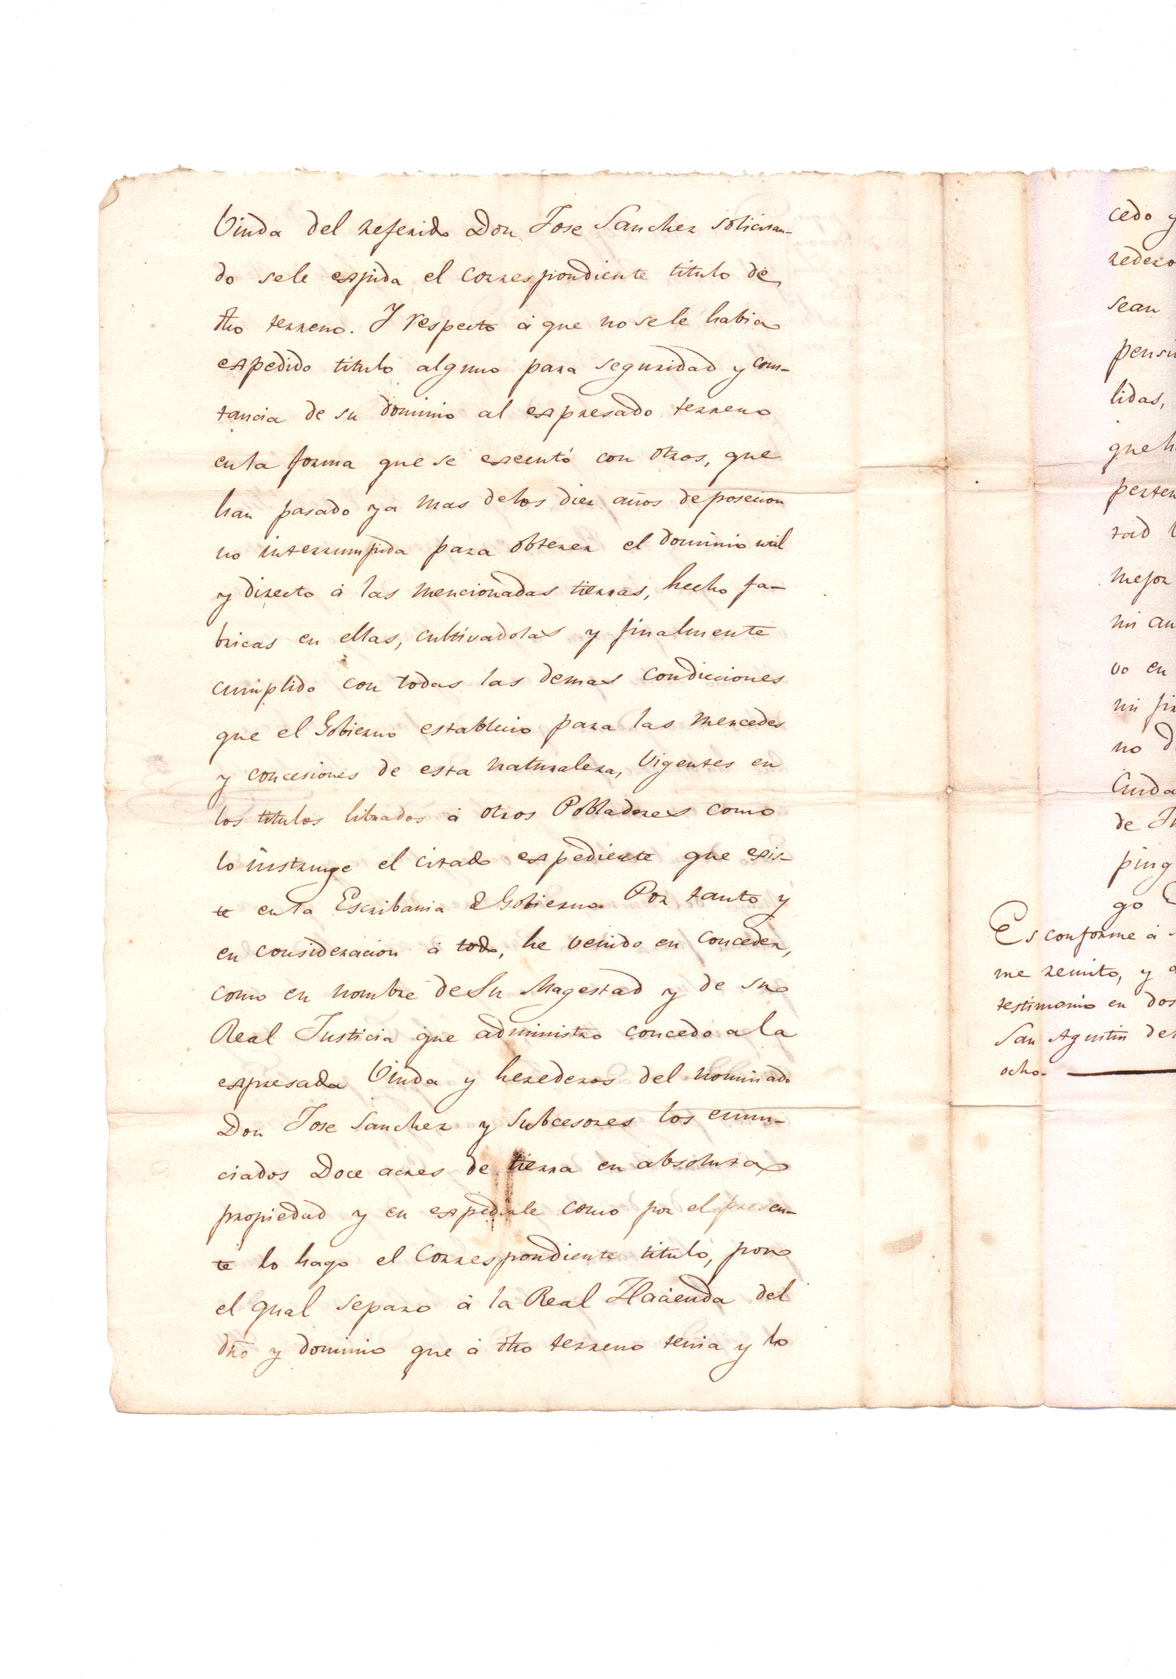 Viuda del referido Don Jose Sanchez solicitan-
do sele espida el correspondiente titulo de
dho terreno. Y respecto à que no se le habia
espedido titulo alguno para seguridad y cons-
tancia de su dominio al espresado terreno
en la forma que se executó con otros, que
han pasado ya mas de los diez años de posecion
no interrumpida para obtener el dominio util
y directo à las mencionadas tierras, hecho fa-
bricas en ellas, cultivadolas y finalmente
cumplido con todas las demas condiciones
que el Gobierno establecio para las mercedes
y concesiones de esta naturaleza, Vigentes en
los titulos librados à otros Pobladores como
lo instruye el citado espediente que exis-
te en la Escribania de Gobierno. Por tanto y
en consideracion à todo, he venido en conceder,
como en nombre de Su Magestad y de su
Real Justicia que administro concedo a la
espresada Viuda y herederos del nominado
Don Jose Sanchez y Subcesores los enun-
ciados Doce acres de tierra en absoluta
propiedad y en espedirle como por el presen-
te lo hago el Correspondiente titulo, por
el qual separo à la Real Hacienda del
dro y dominio que à dho terreno tenia y lo
cedo y
redero
sean
pensi
lidas,
que h
perten
tad
mejor
mi au
vo en
mi fir
no d
Ciuda
de Ju
ping
go
Es conforme à
me remito, y
testimonio en dos
San Agustin de
ocho.